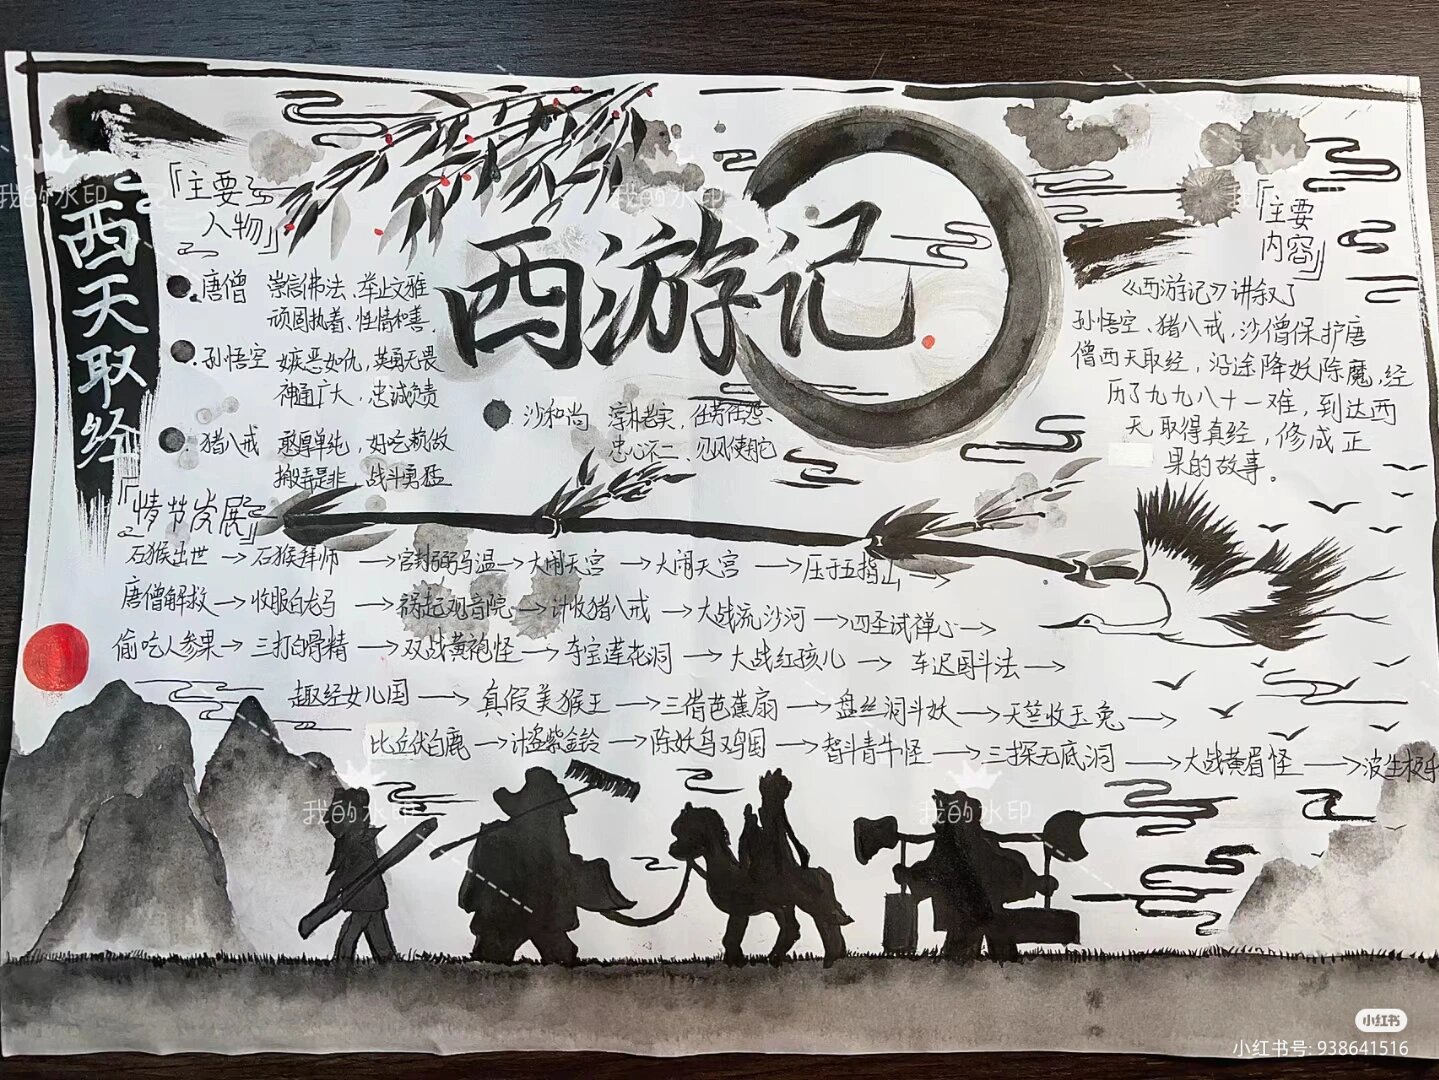 西天取经
西游记
「主要
人物」
唐僧 崇信佛法、举止文雅
顽固执着、性情和善、
孙悟空 嫉恶如仇,英勇无畏
神通广大,忠诚负责
猪八戒 憨厚单纯,好吃懒做
搬弄是非,战斗勇猛
沙和尚 淳朴老实,任劳任怨、
忠心不二、见风使舵
「主要
内容」
《西游记》讲叙了
孙悟空、猪八戒,沙僧保护唐
僧西天取经,沿途降妖除魔,经
历了九九八十一难,到达西
天取得真经,修成正
果的故事。
「情节发展」
石猴出世→石猴拜师→官封弼马温→大闹天宫→大闹天宫→压于五指山→
唐僧解救→收服白龙马→祸起观音院→计收猪八戒→大战流沙河→四圣试禅心→
偷吃人参果→三打白骨精→双战黄袍怪→夺宝莲花洞→大战红孩儿→车迟国斗法→
趣经女儿国→真假美猴王→三借芭蕉扇→盘丝洞斗妖→天竺收玉兔→
比丘伏白鹿→计盗紫金铃→除妖乌鸡国→智斗青牛怪→三探无底洞→大战黄眉怪→波生极乐
我的水印
我的水印
我的水印
我的水印
我的水印
小红书
小红书号: 938641516